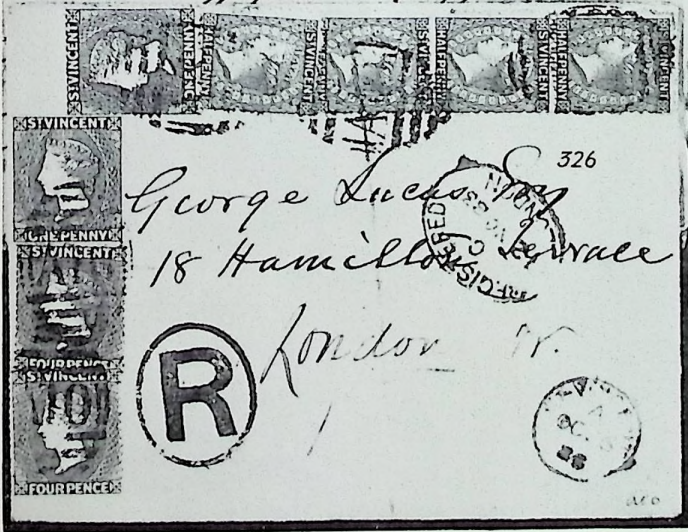 ST VINCENT ONE PENNY HALFPENNY ST VINCENT HALFPENNY ST VINCENT HALFPENNY ST VINCENT HALFPENNY ST VINCENT
ST VINCENT
ONE PENNY
ST VINCENT
FOUR PENCE
ST VINCENT
FOUR PENCE
326
George Lucas Esq
18 Hamilton Terrace
London W.
REGISTERED
LONDON
R